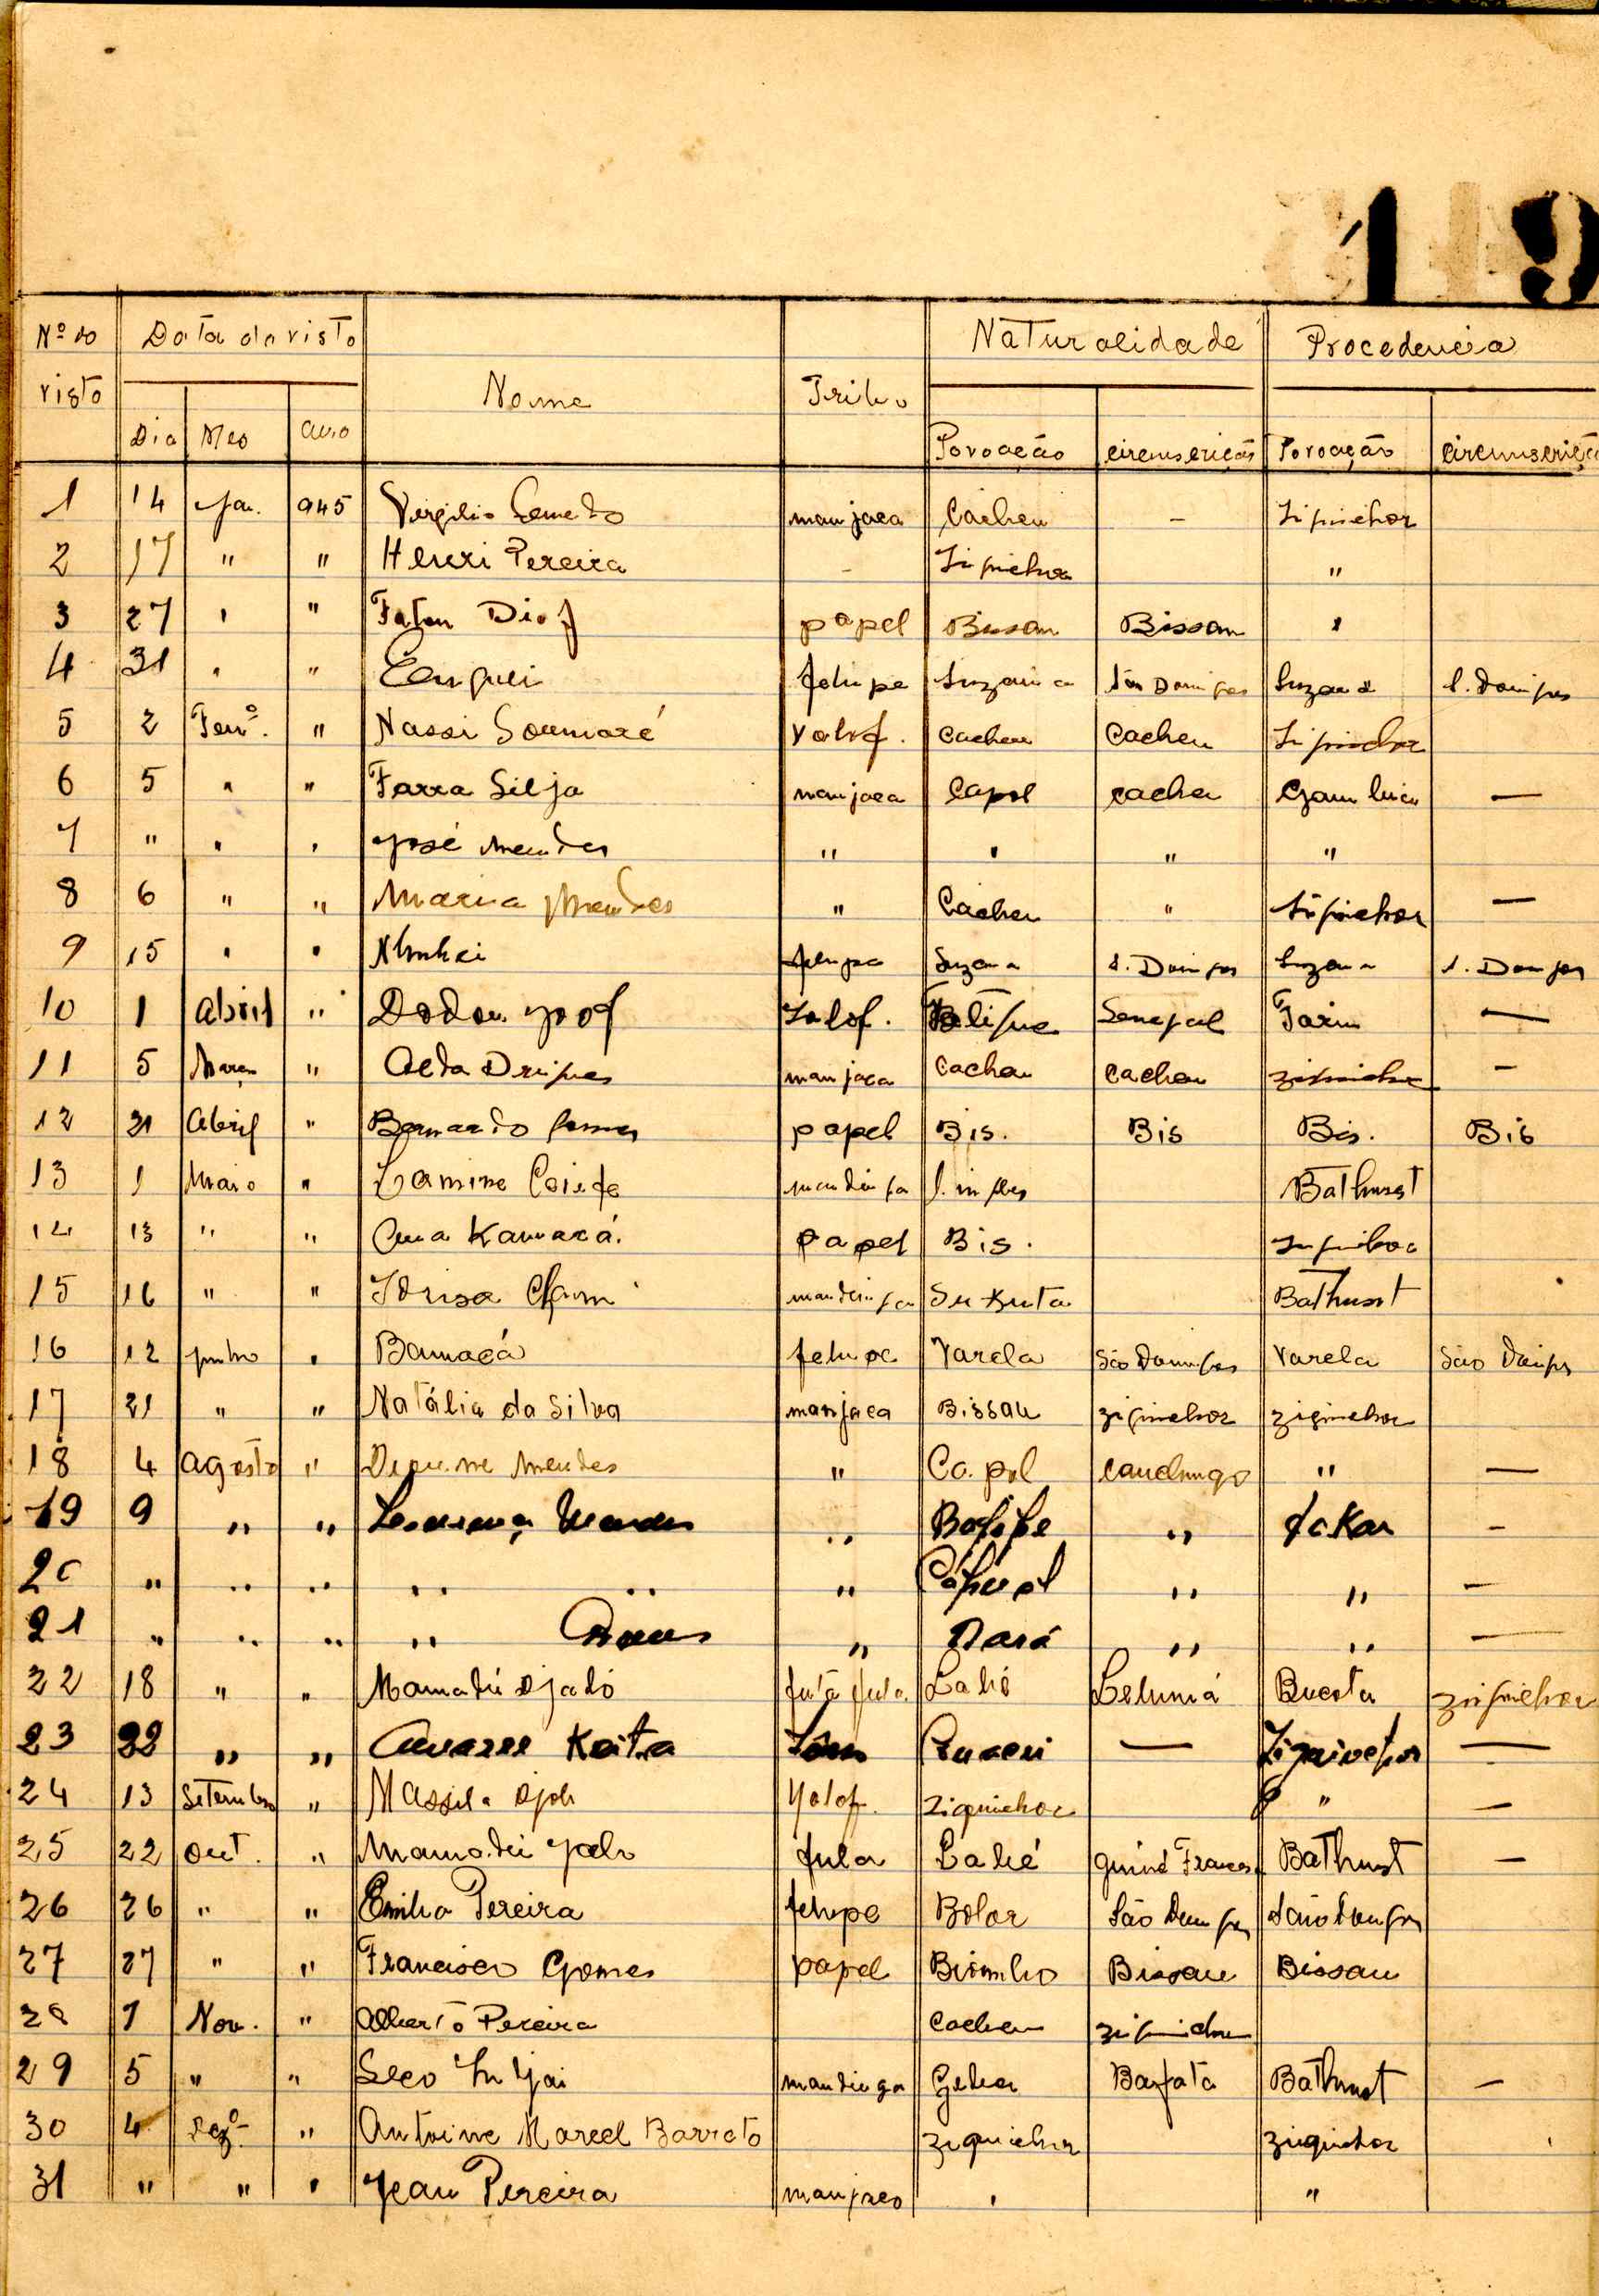 19
Nº do visto Data do visto Nome Tribu Naturalidade Procedencia
Dia Mes Ano Povoação Circunscrição Povoação Circunscriçã
1 14 Jan. 945 Virgilio Semedo manjaca Cacheu - Ziguichor
2 17 " " Henri Pereira - Ziguichor "
3 27 " " Fatou Diof papel Bissau Bissau "
4 31 " " felupe Suzana São Domingos Suzana S. Domingos
5 2 Fevº. " Nassi Soumaré Yolof. Cacheu Cacheu Ziguichor
6 5 " " Farra Silja manjaca Capol cacheu Gambia —
7 " " " José Mendes " " " "
8 6 " " Maria Mendes " Cacheu " Ziguichor —
9 15 " " felupe Suzana S. Domingos Suzana S. Domingos
10 1 Abril " Dodou Joof Jalof. Senegal Farim —
11 5 " Alda manjaca Cacheu Cacheu Ziguichor -
12 21 Abril " Bernardo Gomes papel Bis. Bis Bis. Bis
13 1 Maio " Lamine mandinga Bathurst
14 13 " " Ana Kamará. papel Bis. Ziguichor
15 16 " " Idrisa mandinga Su Kuta Bathurst
16 12 Junho " Bamacá felupe Varela São Domingos Varela São Domingos
17 21 " " Natália da Silva manjaca Bissau ziguichor ziguichor
18 4 Agosto " Mendes " Ca. pol canchungo " —
19 9 " " Mendes " " dakar -
20 " " " " " " " " -
21 " " " " " " " —
22 18 " " Mamadú Djaló futa fula. Labé ziguichor
23 22 " " Keita — Ziguichor —
24 13 Setembro " Yolof. ziguichor " —
25 22 Out. " Mamadu Jalo fula Labé Guiné Frances Bathurst —
26 26 " " Emilia Pereira felupe Bolor São Domingos São Domingos
27 27 " " Francisco Gomes papel Biombo Bissau Bissau
28 1 Nov. " Alberto Pereira Cacheu ziguichor
29 5 " " Seco Injai mandinga Geba Bafata Bathurst —
30 4 Dezº. " Antoine Marcel Barreto ziguichor ziguichor
31 " " " Jean Pereira manjaco " "